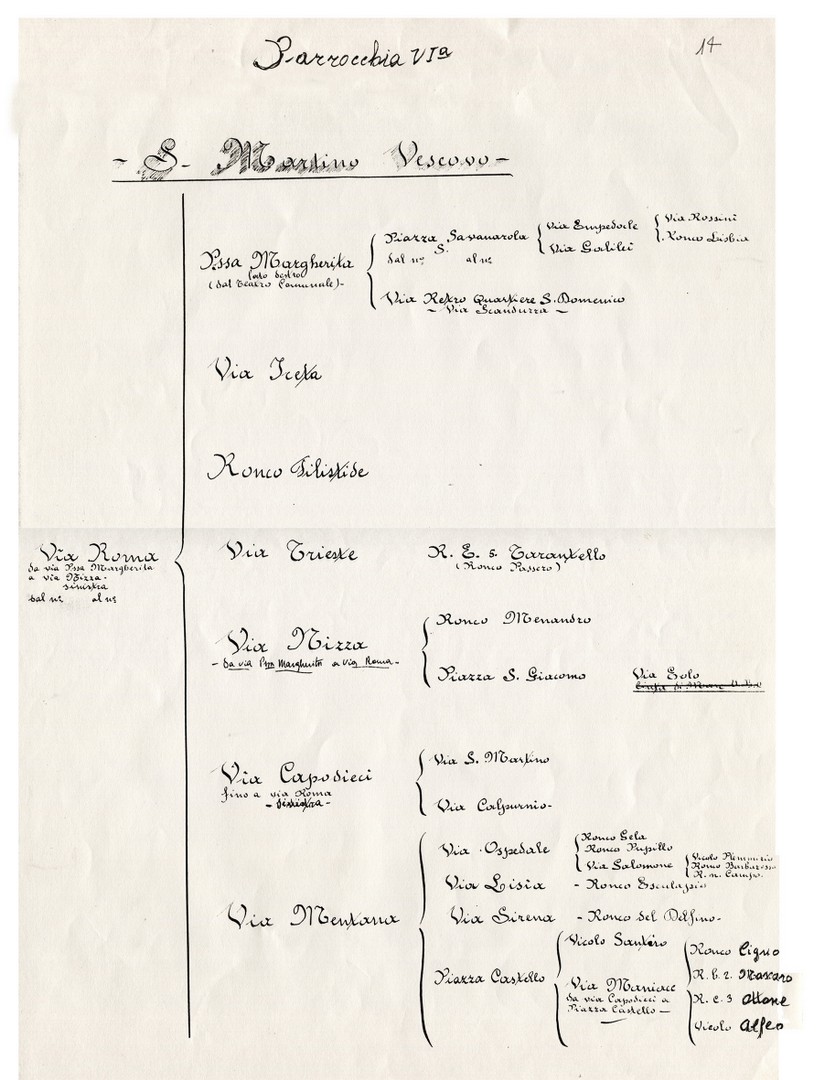 Parrocchia VIª
14
- S. Martino Vescovo -
Via Roma
da via Pssa Margherita
a via Nizza -
sinistra
dal nº al nº
Pssa Margherita
lato destro
(dal Teatro Comunale)-
Piazza Savanarola
S.
dal nº al nº
Via Empedocle
Via Galilei
Via Rossini
Ronco Lisbia
Via Retro Quartiere S. Domenico
- Via Scanduzza -
Via Iceta
Ronco Filistide
Via Trieste
R. E. s. Tarantello
(Ronco Passero)
Via Nizza
- da via Pssa Margherita a via Roma -
Ronco Menandro
Piazza S. Giacomo
Via Eolo
Via Capodieci
fino a via Roma
- sinistra -
Via S. Martino
Via Calpurnio -
Via Mentana
Via Ospedale
Ronco Gela
Ronco Pupillo
Via Salomone
Vicolo
Ronco Barbarosso
R. n. Campo.
Via Lisia - Ronco Esculapio
Via Sirena - Ronco del Delfino -
Piazza Castello
Vicolo Santoro
Via Maniace
da via Capodieci a
Piazza Castello -
Ronco Cigno
R. b. 2. Mascaro
R. c. 3 Attone
Vicolo Alfeo